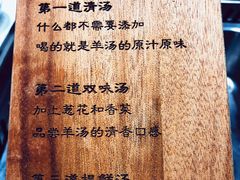 第一道清汤
什么都不需要添加
喝的就是羊汤的原汁原味
第二道双味汤
加上葱花和香菜
品尝羊汤的清香口感
第三道提鲜汤